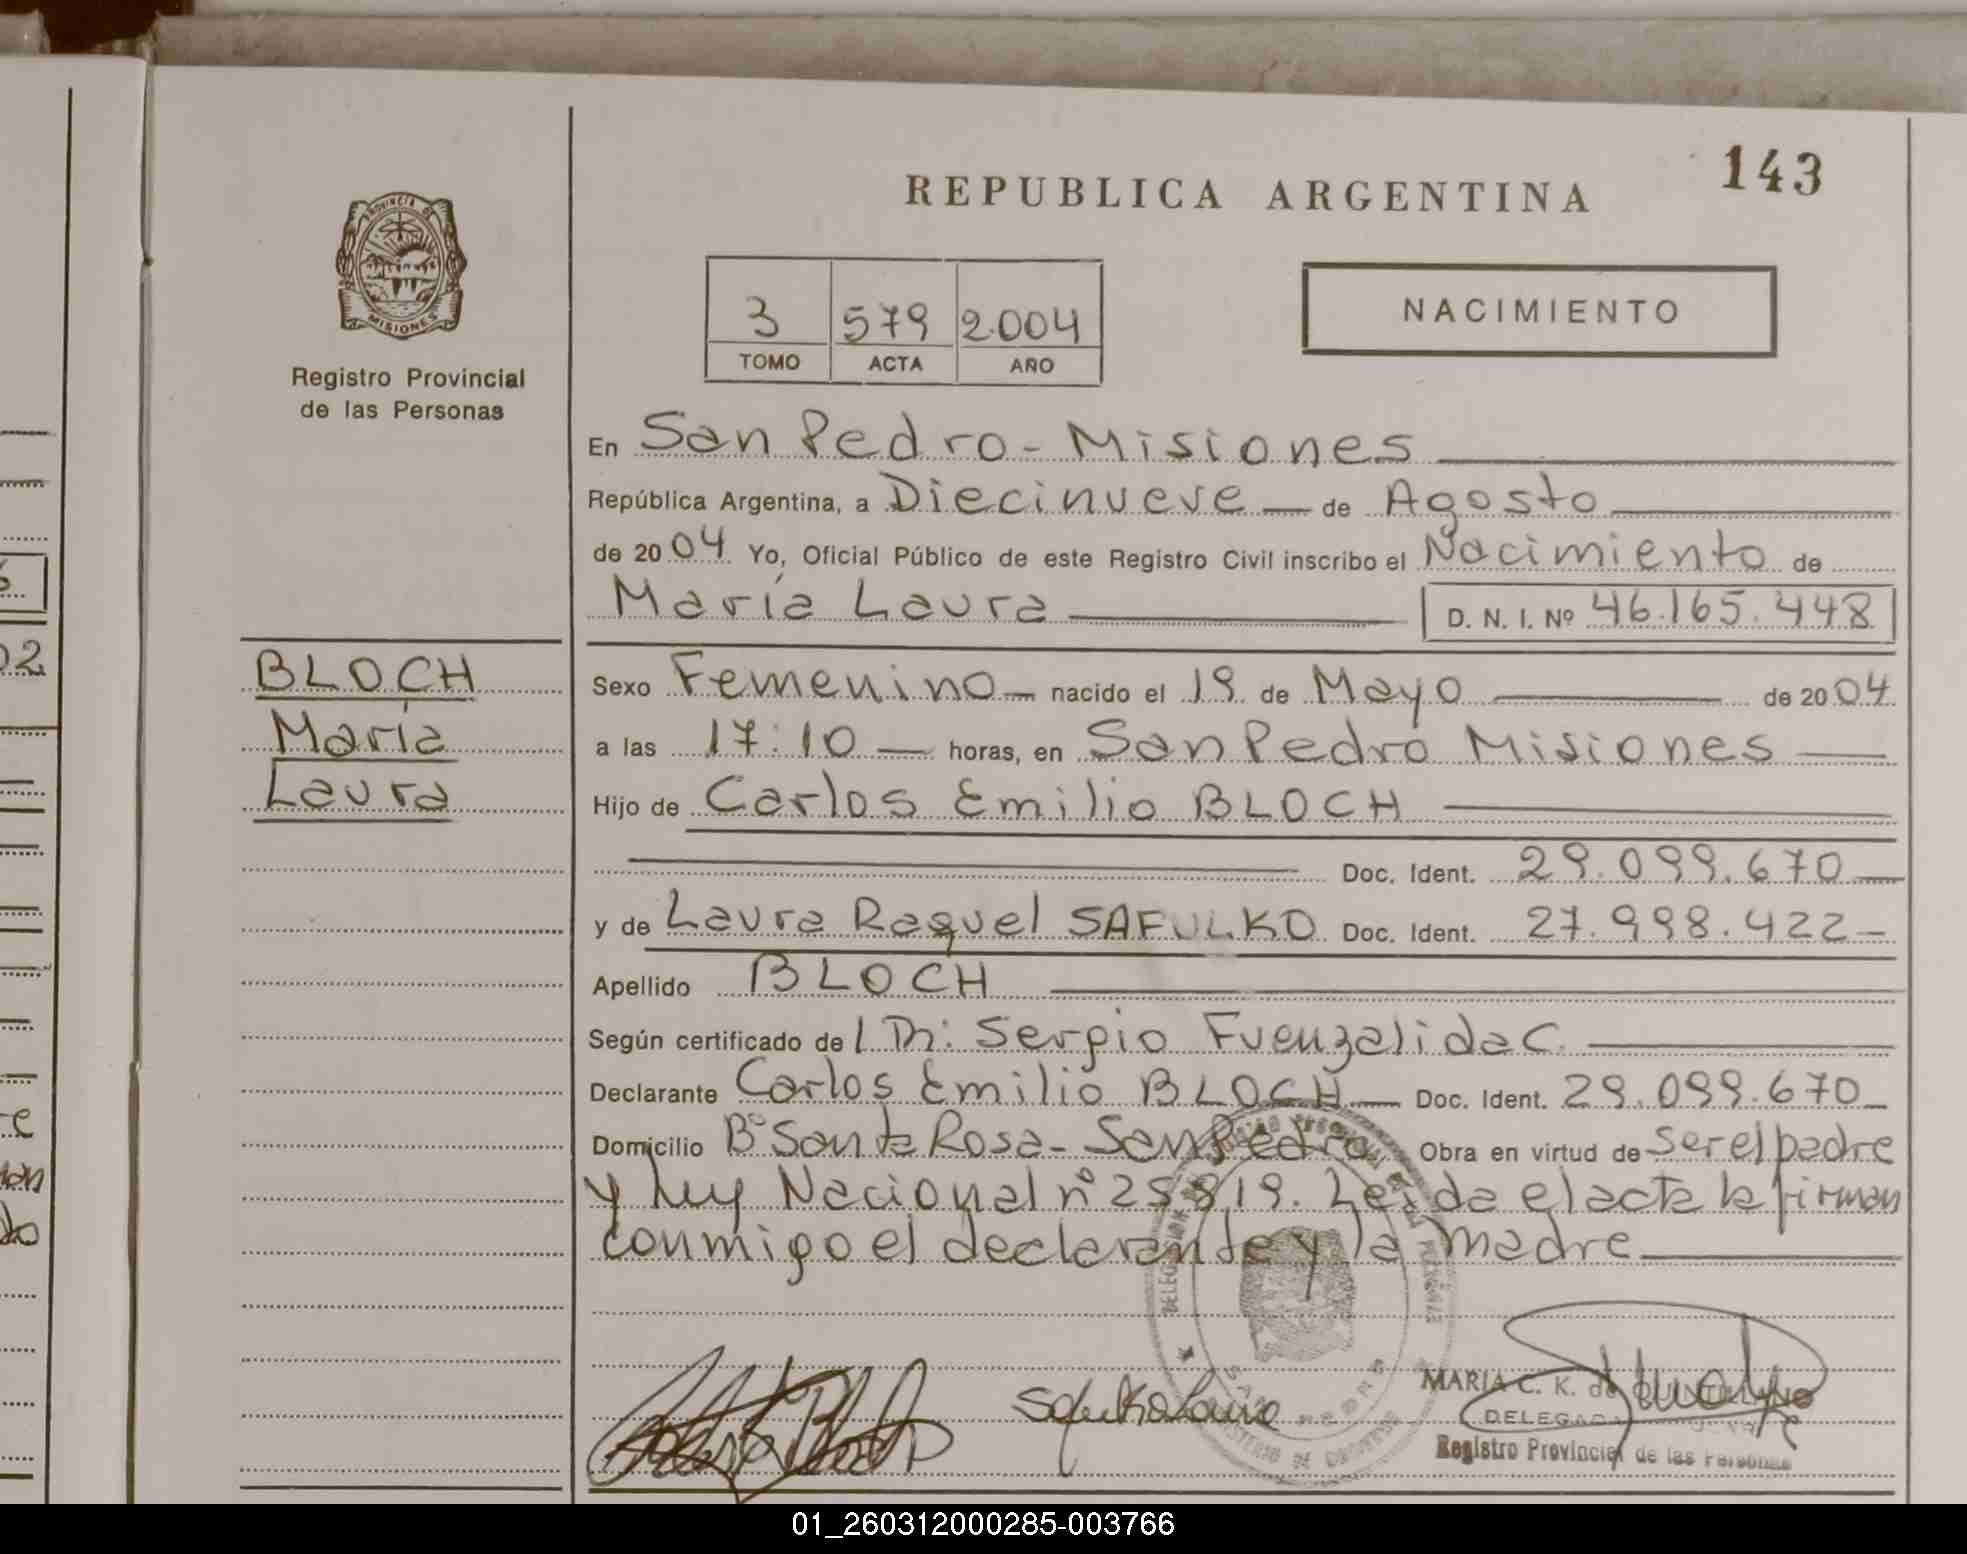 143
REPUBLICA ARGENTINA
PROVINCIA DE
MISIONES
Registro Provincial
de las Personas
3 579 2.004
TOMO ACTA AÑO
NACIMIENTO
En San Pedro - Misiones
República Argentina, a Diecinueve de Agosto
de 2004 Yo, Oficial Público de este Registro Civil inscribo el Nacimiento de
María Laura D. N. I. Nº 46.165.448
BLOCH
María
Laura
Sexo Femenino nacido el 19 de Mayo de 2004
a las 17:10 horas, en San Pedro Misiones
Hijo de Carlos Emilio BLOCH
Doc. Ident. 29.099.670
y de Laura Raquel SAFULKO Doc. Ident. 27.998.422
Apellido BLOCH
Según certificado del Dr: Sergio Fuenzalida C.
Declarante Carlos Emilio BLOCH Doc. Ident. 29.099.670
Domicilio Bº Santa Rosa - San Pedro Obra en virtud de ser el padre
y Ley Nacional nº 25.819. Leída el acta la firman
conmigo el declarante y la madre
Safulko Laura
MARIA C. K. de QUINTILLANO
DELEGADA
Registro Provincial de las Personas
01_260312000285-003766